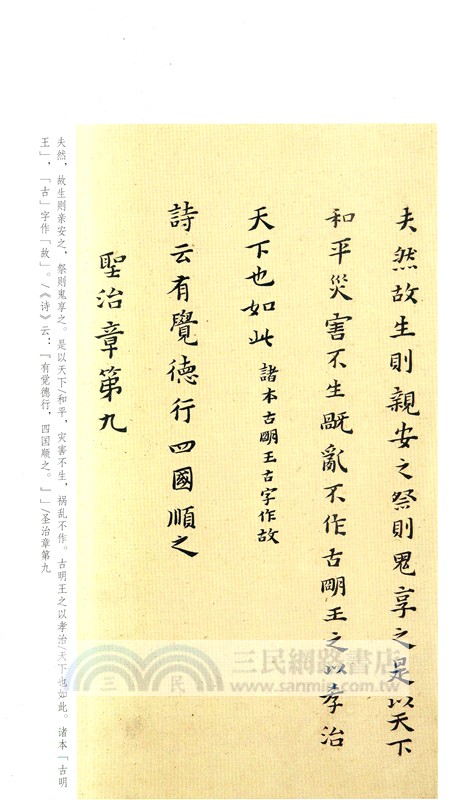 夫然故生則親安之祭則鬼享之是以天下
和平災害不生旤亂不作古明王之以孝治
天下也如此 諸本古明王古字作故
詩云有覺德行四國順之
聖治章第九
夫然，故生则亲安之，祭则鬼享之。是以天下/和平，灾害不生，祸乱不作。古明王之以孝治/天下也如此。诸本「古明
王」，「古」字作「故」。/《诗》云：『有觉德行，四国顺之。』」/圣治章第九
三民網路書店
www.sanmin.com.tw
三
民